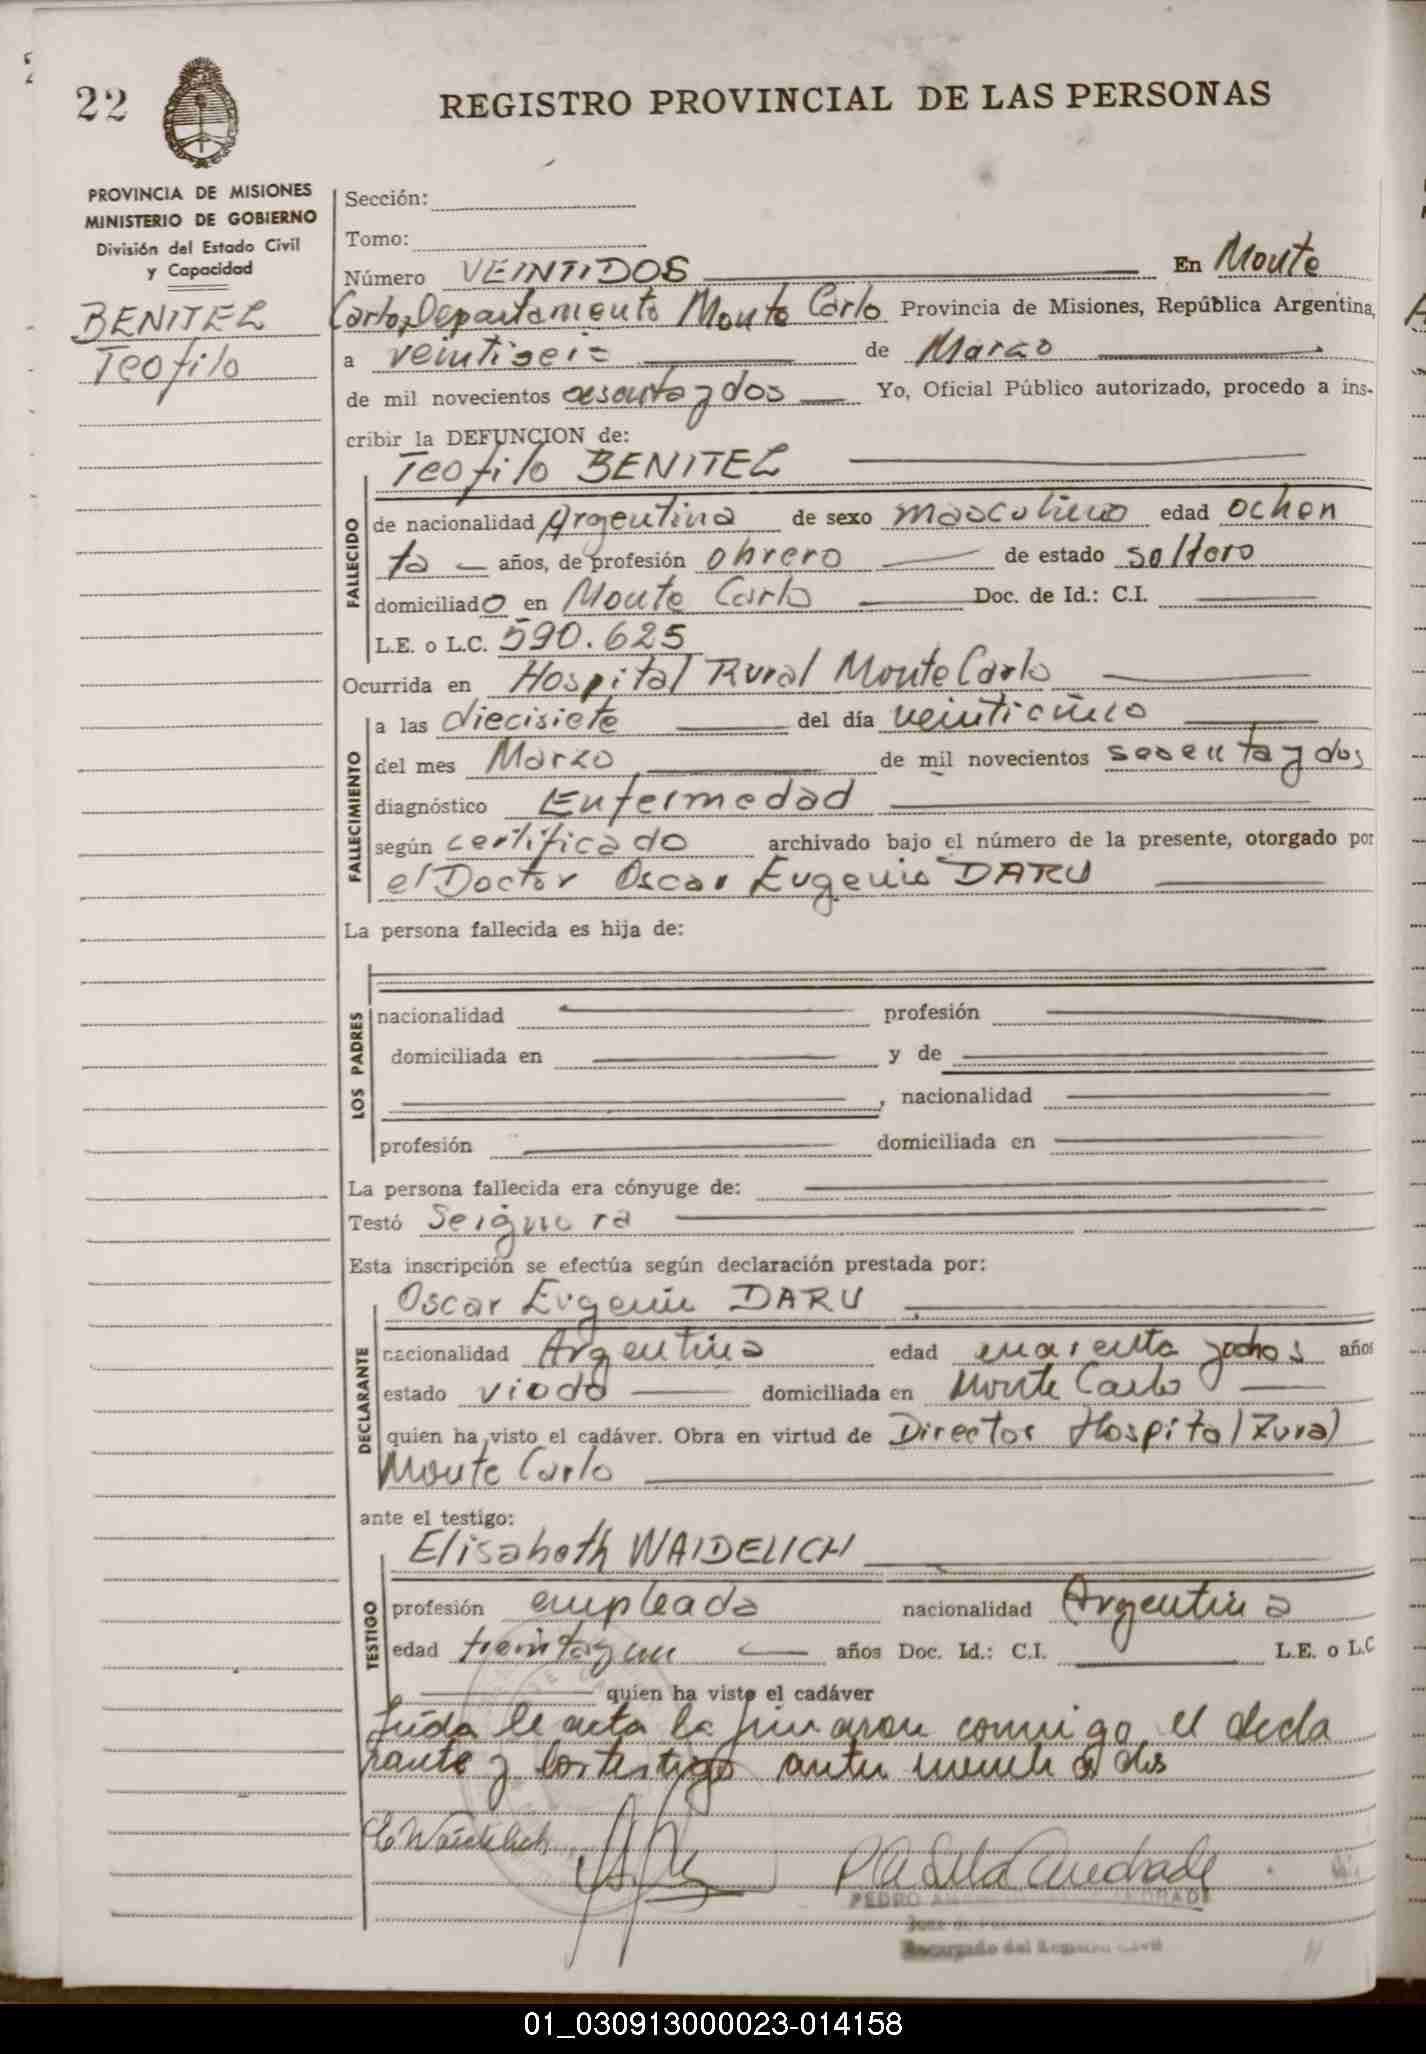 22
REGISTRO PROVINCIAL DE LAS PERSONAS
PROVINCIA DE MISIONES
MINISTERIO DE GOBIERNO
División del Estado Civil
y Capacidad
BENITEZ
Teofilo
Sección:
Tomo:
Número VEINTIDOS En Monte
Carlo, Departamento Monte Carlo Provincia de Misiones, República Argentina,
a veintiseis de Marzo
de mil novecientos sesenta y dos Yo, Oficial Público autorizado, procedo a ins-
cribir la DEFUNCION de:
Teofilo BENITEZ
FALLECIDO
de nacionalidad Argentina de sexo masculino edad ochen
ta años, de profesión obrero de estado soltero
domiciliado en Monte Carlo Doc. de Id.: C.I.
L.E. o L.C. 590.625
Ocurrida en Hospital Rural Monte Carlo
FALLECIMIENTO
a las diecisiete del día veinticinco
del mes Marzo de mil novecientos sesenta y dos
diagnóstico Enfermedad
según certificado archivado bajo el número de la presente, otorgado por
el Doctor Oscar Eugenio DARU
La persona fallecida es hija de:
LOS PADRES
nacionalidad profesión
domiciliada en y de
, nacionalidad
profesión domiciliada en
La persona fallecida era cónyuge de:
Testó Se ignora
Esta inscripción se efectúa según declaración prestada por:
Oscar Eugenio DARU
DECLARANTE
nacionalidad Argentina edad cuarenta y ocho años
estado viodo domiciliada en Monte Carlo
quien ha visto el cadáver. Obra en virtud de Director Hospital Rural
Monte Carlo
ante el testigo:
Elisabeth WAIDELICH
TESTIGO
profesión empleada nacionalidad Argentina
edad treinta y un años Doc. Id.: C.I. L.E. o L.C
quien ha visto el cadáver
Leida le acta la firmaron conmigo el decla
rante y los testigo
E Waidelich
PEDRO
Encargado del Registro Civil
01_030913000023-014158